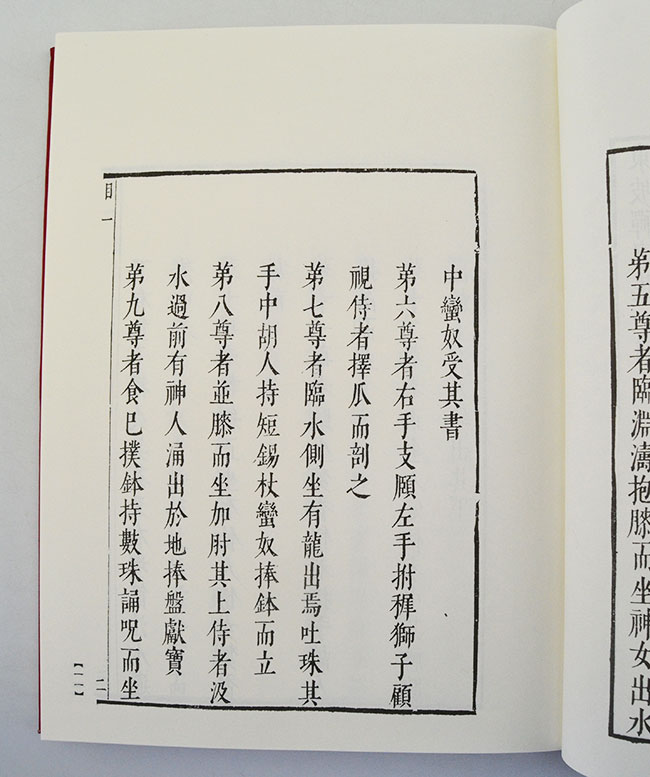 第五尊者臨淵濤抱膝而坐神女出水
中蠻奴受其書
第六尊者右手支頤左手拊穉獅子顧
視侍者擇瓜而剖之
第七尊者臨水側坐有龍出焉吐珠其
手中胡人持短錫杖蠻奴捧鉢而立
第八尊者並膝而坐加肘其上侍者汲
水過前有神人涌出於地捧盤獻寶
第九尊者食已撲鉢持數珠誦呪而坐
目一
二